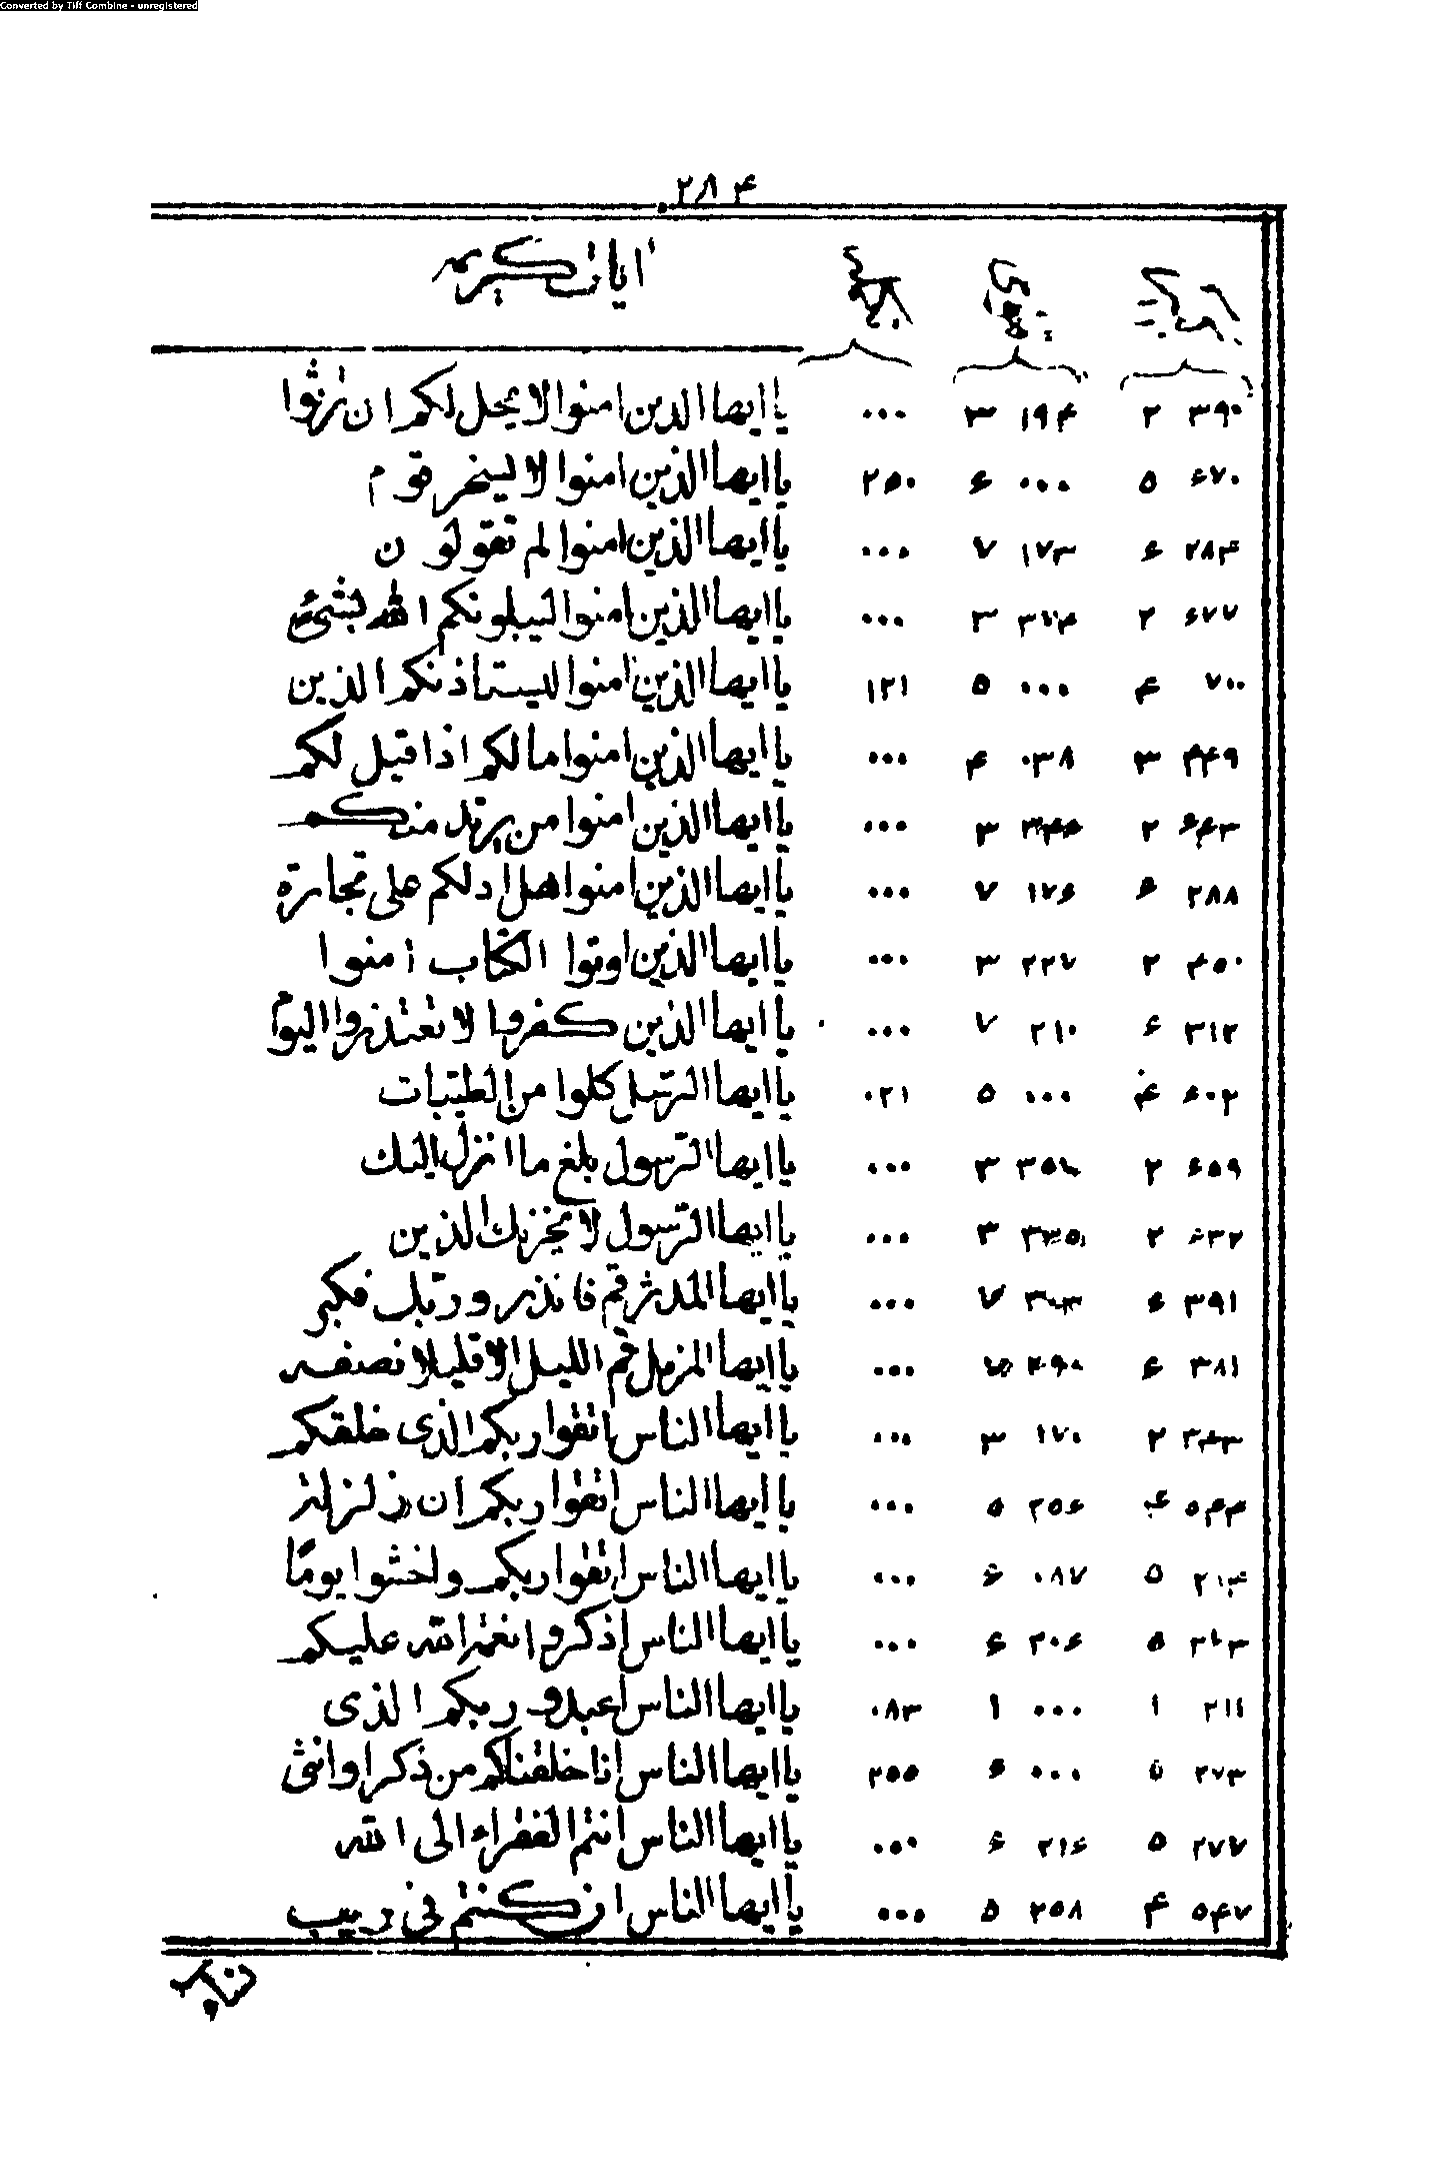 Converted by Tiff Combine - unregistered
۲۸۴
ایات کریمه
۳۹۰ ۲ ۱۹۴ ۳ ۰۰۰ یا ایها الذین امنوا لا یحل لکم ان ترثوا
۶۷۰ ۵ ۰۰۰ ۶ ۲۵۰ یا ایها الذین امنوا لا یسخر قوم
۲۸۴ ۶ ۱۷۳ ۷ ۰۰۰ یا ایها الذین امنوا لم تقولون
۶۷۷ ۲ ۳ ۰۰۰ یا ایها الذین امنوا لیبلونکم الله بشیء
۷۰۰ ۴ ۰۰۰ ۵ ۱۲۱ یا ایها الذین امنوا لیستاذنکم الذین
۴۴۹ ۳ ۰۳۸ ۴ ۰۰۰ یا ایها الذین امنوا مالکم اذا قیل لکم
۶۴۳ ۲ ۳۴۵ ۳ ۰۰۰ یا ایها الذین امنوا من یرتد منکم
۲۸۸ ۶ ۱۷۶ ۷ ۰۰۰ یا ایها الذین امنوا هل ادلکم علی تجارة
۴۵۰ ۲ ۲۲۷ ۳ ۰۰۰ یا ایها الذین اوتوا الکتاب امنوا
۳۱۲ ۶ ۲۱۰ ۷ ۰۰۰ یا ایها الذین کفروا لا تعتذروا الیوم
۶۰۲ ۴ ۰۰۰ ۵ ۰۲۱ یا ایها الرسل کلوا من الطیبات
۶۵۹ ۲ ۳ ۰۰۰ یا ایها الرسول بلغ ما انزل الیک
۶۳۲ ۲ ۳ ۰۰۰ یا ایها الرسول لا یحزنک الذین
۳۹۱ ۶ ۷ ۰۰۰ یا ایها المدثر قم فانذر و ربک فکبر
۳۸۱ ۶ ۲۹۰ ۷ ۰۰۰ یا ایها المزمل قم اللیل الا قلیلا نصفه
۳۴۳ ۲ ۱۷۰ ۳ ۰۰۰ یا ایها الناس اتقوا ربکم الذی خلقکم
۵۴۴ ۴ ۲۵۶ ۵ ۰۰۰ یا ایها الناس اتقوا ربکم ان زلزلة
۲۱۴ ۵ ۰۸۷ ۶ ۰۰۰ یا ایها الناس اتقوا ربکم واخشوا یومًا
۵ ۲۰۶ ۶ ۰۰۰ یا ایها الناس اذکروا نعمة الله علیکم
۲۱۱ ۱ ۰۰۰ ۱ ۰۸۳ یا ایها الناس اعبدو ربکم الذی
۲۷۳ ۵ ۰۰۰ ۶ ۲۵۵ یا ایها الناس انا خلقناکم من ذکر او انثی
۲۷۷ ۵ ۲۱۶ ۶ ۰۰۰ یا ایها الناس انتم الفقراء الی الله
۵۴۷ ۴ ۲۵۸ ۵ ۰۰۰ یا ایها الناس ان کنتم فی ریب